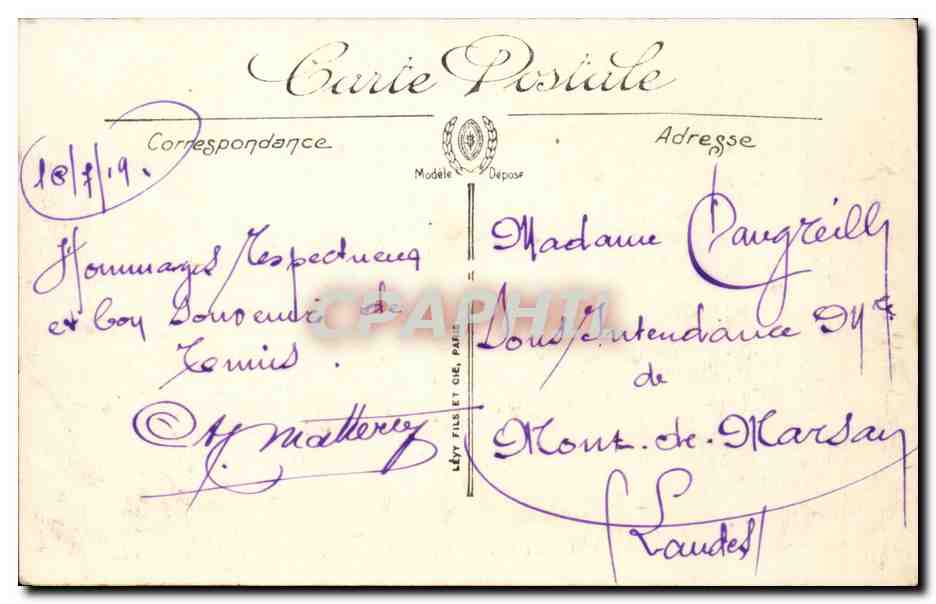 Carte Postale
Correspondance
Adresse
Modèle Déposé
18/7/19.
Hommages respectueux
et bon souvenir de
Tennis.
Madame Daugreilh
Sous/Intendance Mre
de
Mont-de-Marsan
(Landes)
LÉVY FILS ET CIE, PARIS
CPAPHIL